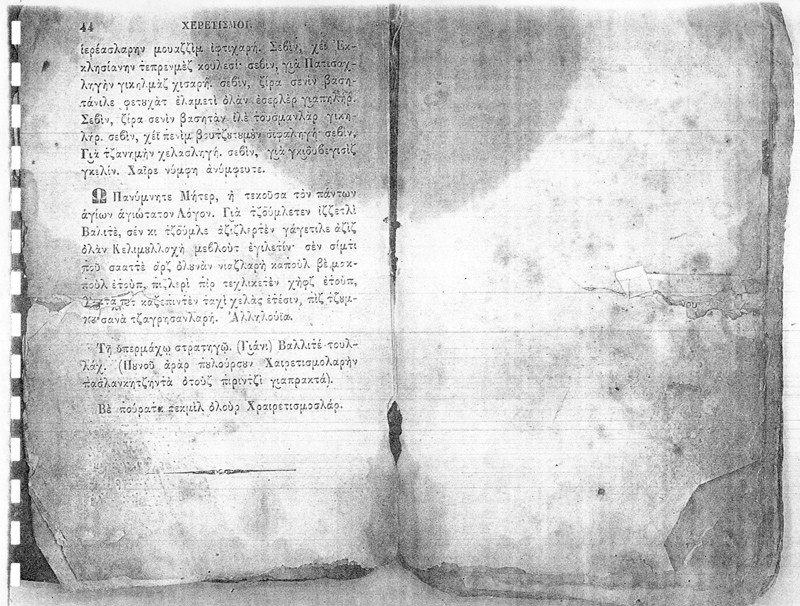 44 ΧΕΡΕΤΙΣΜΟΙ.
ἱερέασλαρην μουαζζὶμ ἰφτιχαρή. Σεβὶν, χέϊ Ἐκ-
κλησίανην τεπρενμὲζ κουλεσί· σεβὶν, γιὰ Πατισαχ-
ληγὴν γικηλμὰζ χισαρή. σεβὶν, ζίρα σενὶν βαση-
τάνιλε φετουχὰτ ἐλαμετὶ ὀλὰν ἐσερλὲρ γιαπηλήρ.
Σεβὶν, ζίρα σενὶν βασητὰν ἱλὲ τουσμανλὰρ γικη-
λήρ. σεβὶν, χέϊ πενὶμ βουτζουτουμοὺν σιφαληγή· σεβὶν,
Γιὰ τζανημὴν χελασληγή. σεβὶν, γιὰ γκιουβεγισὶζ
γκελίν. Χαῖρε νύμφη ἀνύμφευτε.
Ὦ Πανύμνητε Μήτερ, ἡ τεκοῦσα τὸν πάντων
ἁγίων ἁγιώτατον Λόγον. Γιὰ τζούμλετεν ἰζζετλὶ
Βαλιτὲ, σέν κι τζούμλε ἀζιζλερτὲν γάγετιλε ἀζὶζ
ὀλὰν Κελιμουλλαχὴ μεβλοὺτ ἐγιλετίν· σὲν σίμτι
ποῦ σααττὲ ἀρζ ὀλουνὰν νιαζλαρὴ καποὺλ βὲ μακ-
ποὺλ ἐτοὺπ, πιζλερὶ πὶρ τεχλικετὲν χὴφζ ἐτοὺπ,
καζεπιντὲν ταχὶ χελὰς ἐτέσιν, πὶζ τζουμ-
σανὰ τζαγρησανλαρή. Ἀλληλούϊα.
Τῇ ὑπερμάχῳ στρατηγῷ. (Γιάνι) Βαλλιτέ-τουλ-
λάχ. (Πουνοῦ ἀρὰρ πουλούρσουν Χαιρετισμολαρὴν
πασλανκητζηντὰ ὀτοὺζ πιριντζὶ γιαπρακτά).
Βὲ πούρατα τεκμὶλ ὀλοὺρ Χραιρετισμοσλάρ.